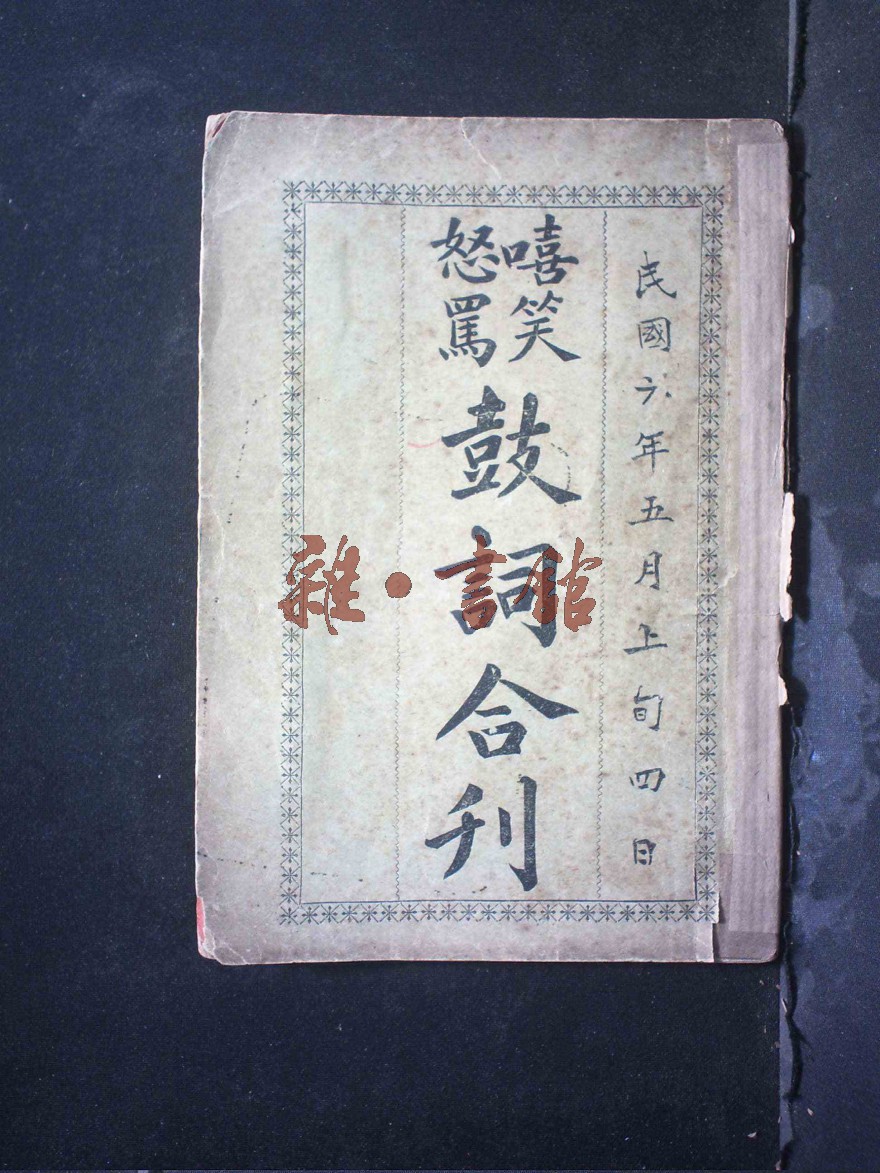 民國六年五月上旬四日
嘻笑
怒罵
鼓詞合刊
雜·書館